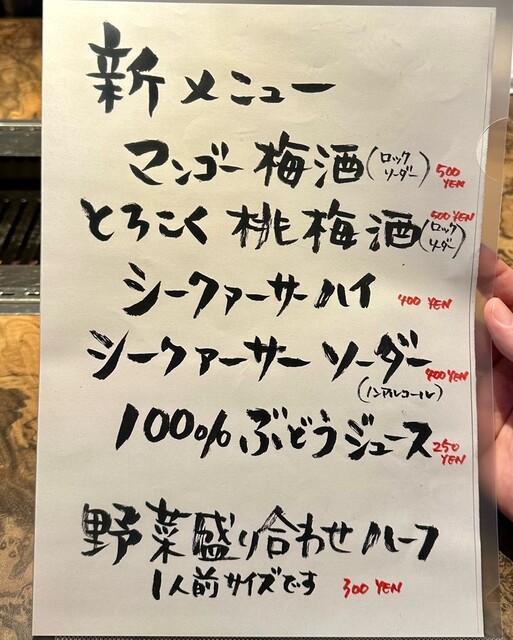 新メニュー
マンゴー梅酒(ロックソーダー) 500 YEN
とろこく桃梅酒(ロックソーダー) 500 YEN
シークァーサーハイ 400 YEN
シークァーサーソーダー 400 YEN
(ノンアルコール)
100%ぶどうジュース 250 YEN
野菜盛り合わせハーフ
1人前サイズです 300 YEN